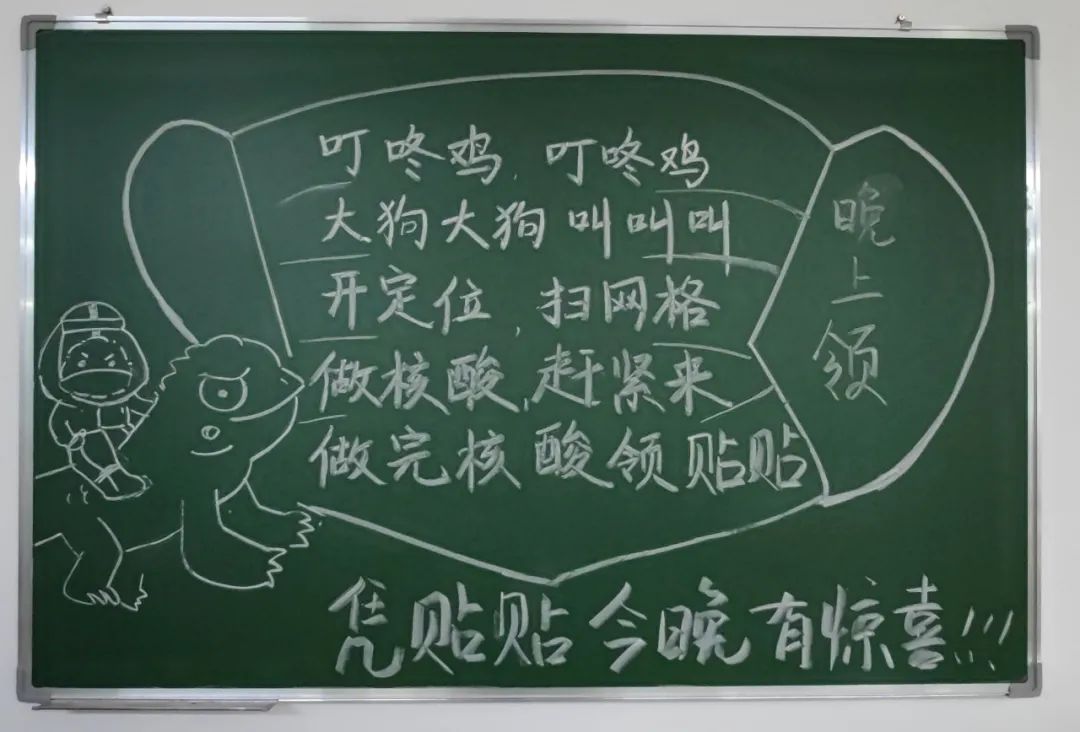 叮咚鸡，叮咚鸡
大狗大狗叫叫叫
开定位，扫网格
做核酸，赶紧来
做完核酸领贴贴
晚上领
凭贴贴今晚有惊喜!!!